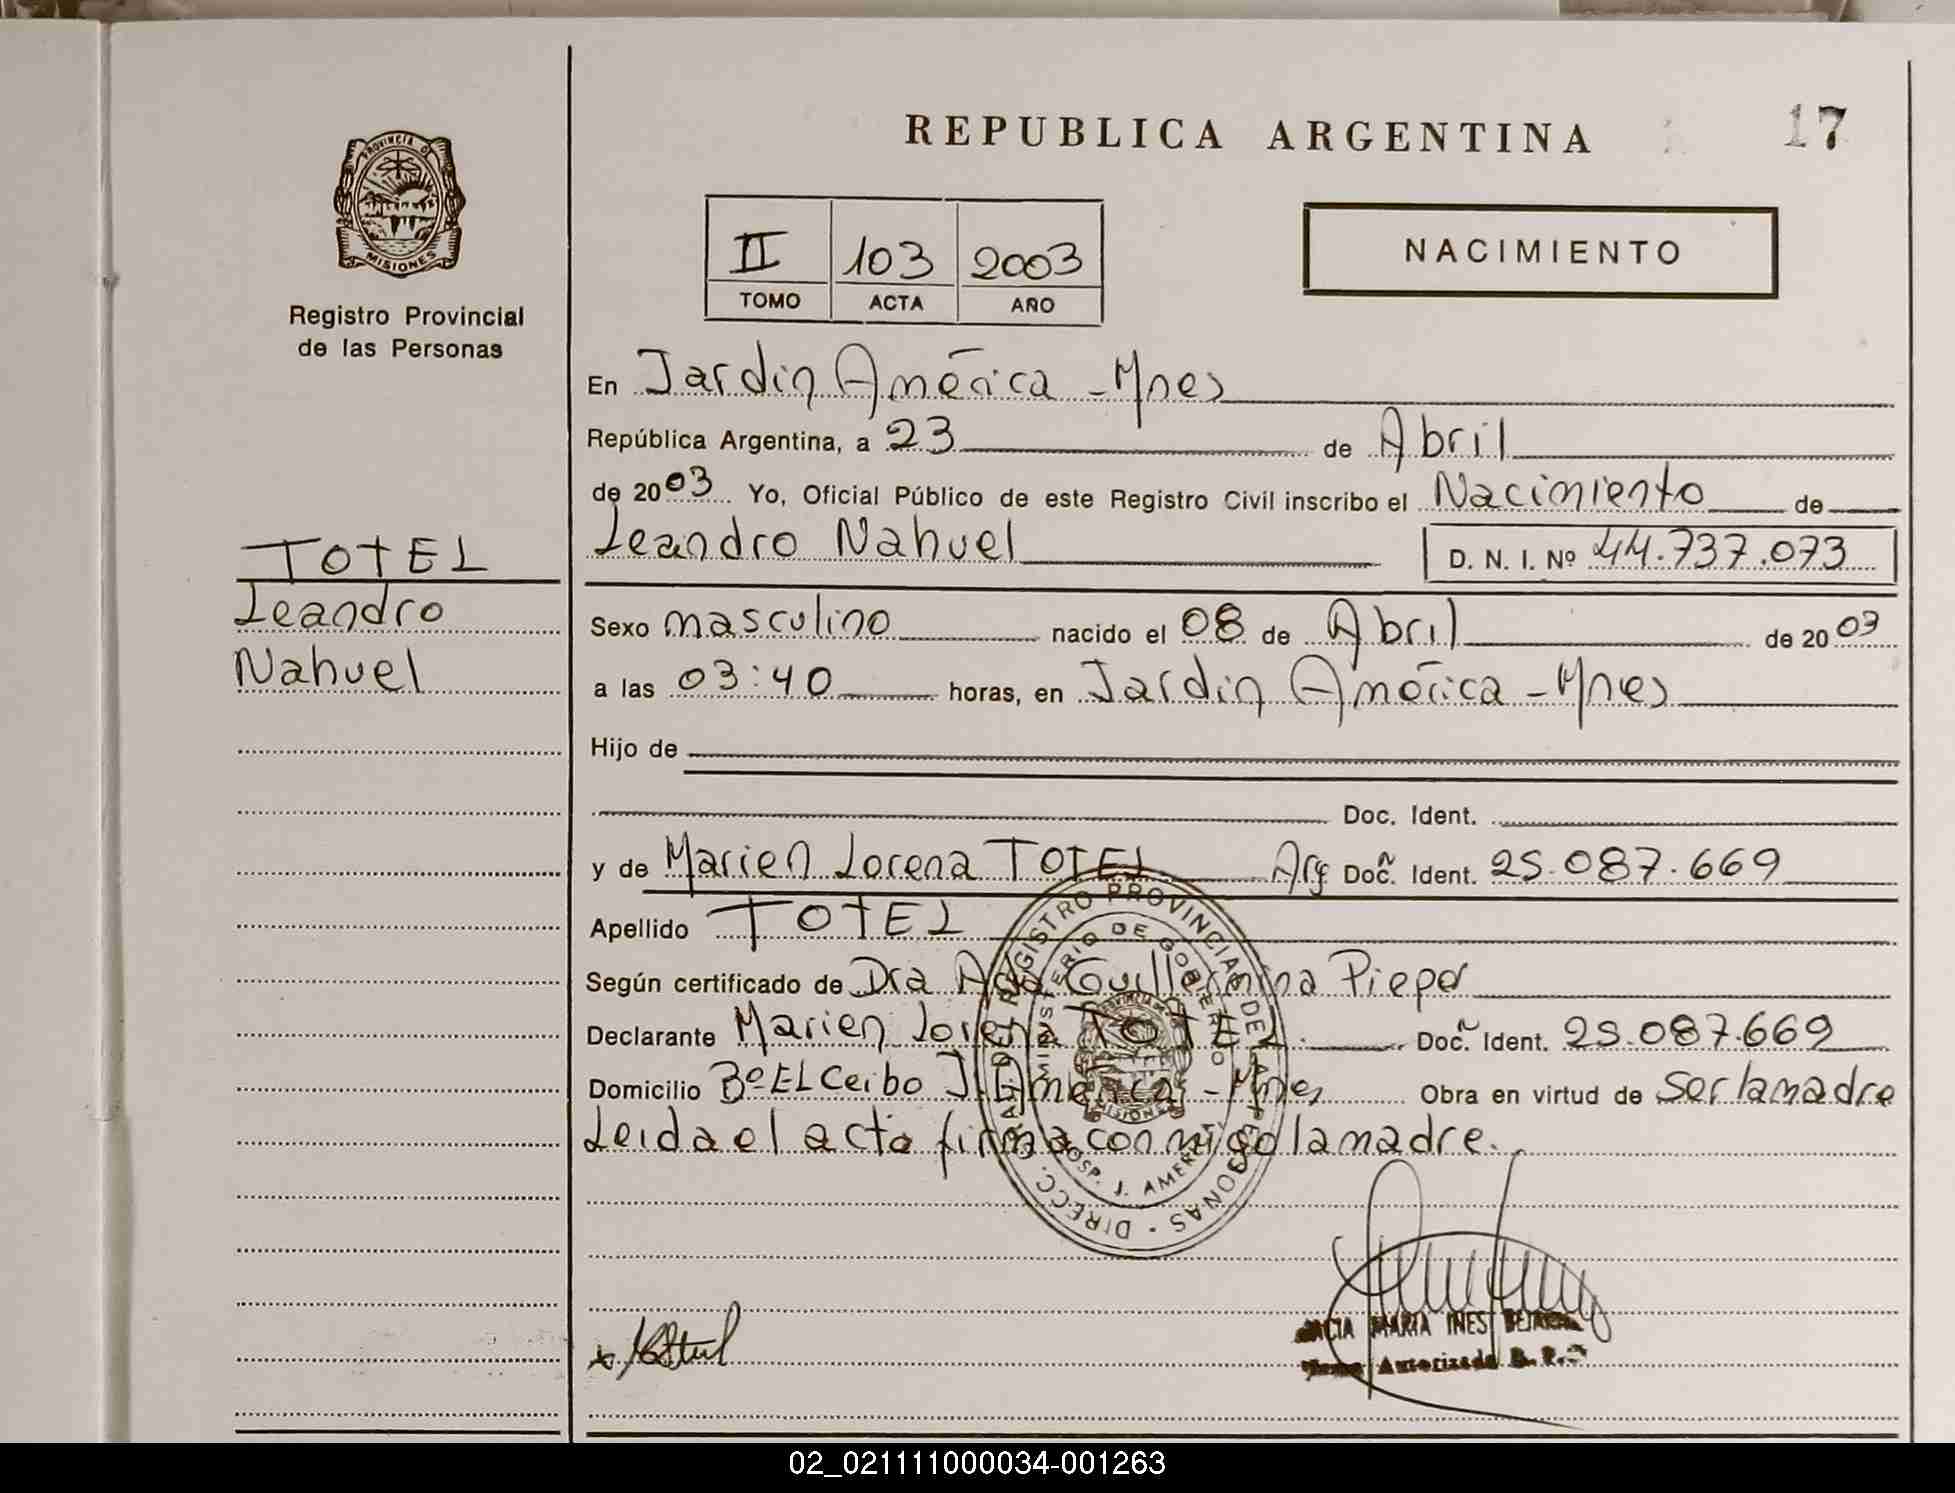 REPUBLICA ARGENTINA
17
PROVINCIA DE
MISIONES
Registro Provincial
de las Personas
II 103 2003
TOMO ACTA AÑO
NACIMIENTO
En Jardin América - Mnes
República Argentina, a 23 de Abril
de 2003 Yo, Oficial Público de este Registro Civil inscribo el Nacimiento de
Leandro Nahuel D. N. I. Nº 44.737.073
TOTEL
Leandro
Nahuel
Sexo masculino nacido el 08 de Abril de 2003
a las 03:40 horas, en Jardin América - Mnes
Hijo de
Doc. Ident.
y de Marien Lorena TOTEL Arg Doc. Ident. 25.087.669
Apellido TOTEL
Según certificado de Dra Guillermina Pieper
Declarante Marien Lorena TOTEL Doc. Ident. 25.087.669
Domicilio Bº EL Ceibo J. América - Mnes Obra en virtud de ser la madre
Leida el acta firma conmigo la madre.
DIRECC. GRAL. DEL REGISTRO PROVINCIAL DE LAS PERSONAS
MINISTERIO DE GOBIERNO
HOSP. J. AMERICA
MISIONES
MARIA INES
Autorizada
02_021111000034-001263